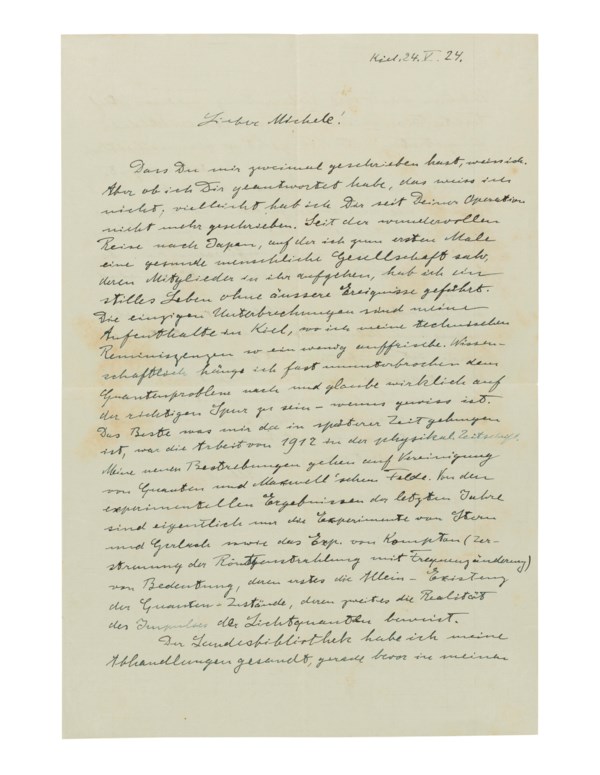 Kiel. 24. V. 24.
Lieber Michele!
Dass Du mir zweimal geschrieben hast, weiss ich.
Aber ob ich Dir geantwortet habe, das weiss ich
nicht, vielleicht hab ich Dir seit Deiner Operation
nicht mehr geschrieben. Seit der wundervollen
Reise nach Japan, auf der ich zum ersten Male
eine gesunde menschliche Gesellschaft sah,
deren Mitglieder in ihr aufgehen, hab ich ein
stilles Leben ohne äussere Ereignisse geführt.
Die einzigen Unterbrechungen sind meine
Aufenthalte in Kiel, wo ich meine technischen
Reminiszenzen so ein wenig auffrische. Wissen-
schaftlich hänge ich fast ununterbrochen dem
Quantenproblem nach und glaube wirklich auf
der richtigen Spur zu sein – wenns gewiss ist.
Das Beste was mir da in späterer Zeit gelungen
ist, war die Arbeit von 1912 in der physikal. Zeitschrift.
Meine neuen Bestrebungen gehen auf Vereinigung
von Quanten und Maxwell'schem Felde. Von den
experimentellen Ergebnissen der letzten Jahre
sind eigentlich nur die Experimente von Stern
und Gerlach sowie das Exp. von Kompton (Zer-
streuung der Röntgenstrahlung mit Frequenzänderung)
von Bedeutung, deren erstes die Allein-Existenz
der Quanten-Zustände, deren zweites die Realität
des Impulses der Lichtquanten beweist.
Der Landesbibliothek habe ich meine
Abhandlungen gesandt, gerade bevor in meinen